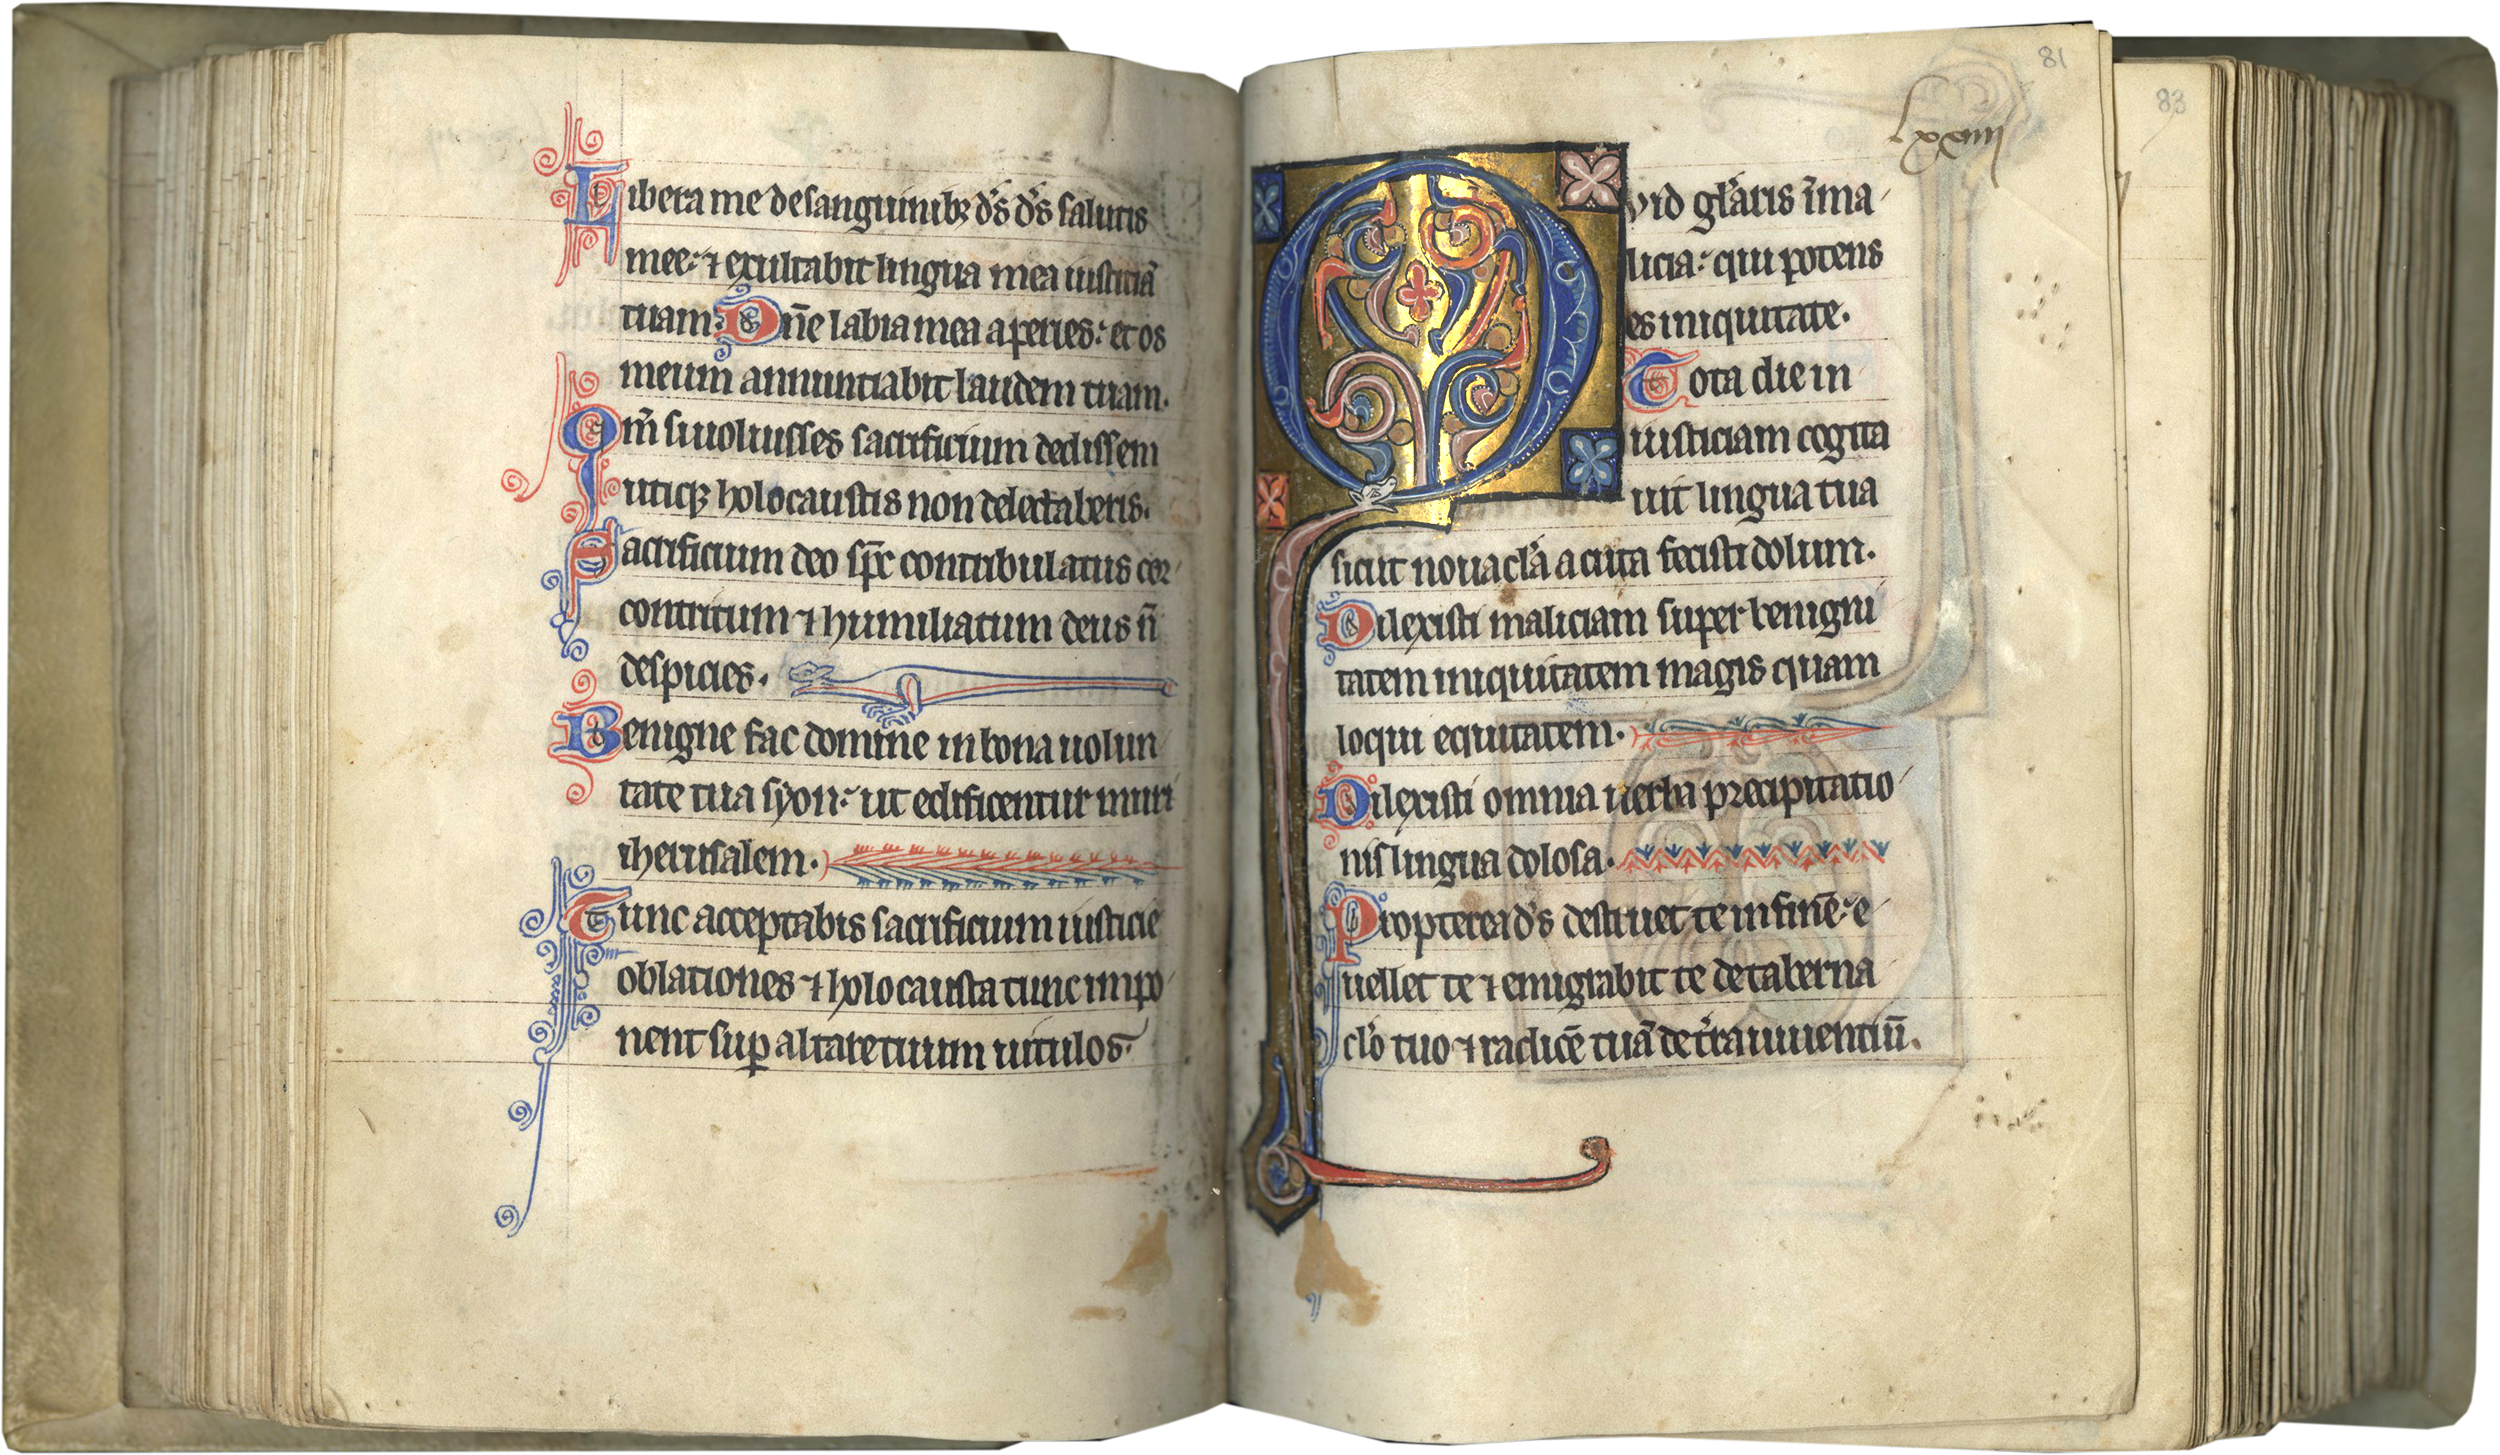 Libera me de sanguinibꝫ d̄s d̄s salutis
mee: ⁊ exultabit lingua mea iusticiā
tuam: Dn̄e labia mea aperies: et os
meum annuntiabit laudem tuam.
Qm̄ si uoluisses sacrificium dedissem
utiqꝫ holocaustis non delectaberis.
Sacrificium deo sp̄c contribulatus cor
contritum ⁊ humiliatum deus n̄
despicies.
Benigne fac domine in bona uolun
tate tua syon: ut edificentur muri
iherusalem.
Tunc acceptabis sacrificium iusticie
oblationes ⁊ holocausta tunc impo
nent suꝑ altare tuum uitulos.
81
lxxiiij
Qvid gl̄aris ī ma
licia: qui potens
es iniquitate.
Tota die in
iusticiam cogita
uit lingua tua
sicut nouacl̄a acuta fecisti dolum.
Dilexisti maliciam super benigni
tatem iniquitatem magis quam
loqui equitatem.
Dilexisti omnia uerba precipitatio
nis lingua dolosa.
Propterea d̄s destruet te in finē: e
uellet te ⁊ emigrabit te de taberna
cl̄o tuo ⁊ radicē tuā de t̄ra uiuentiū.
83